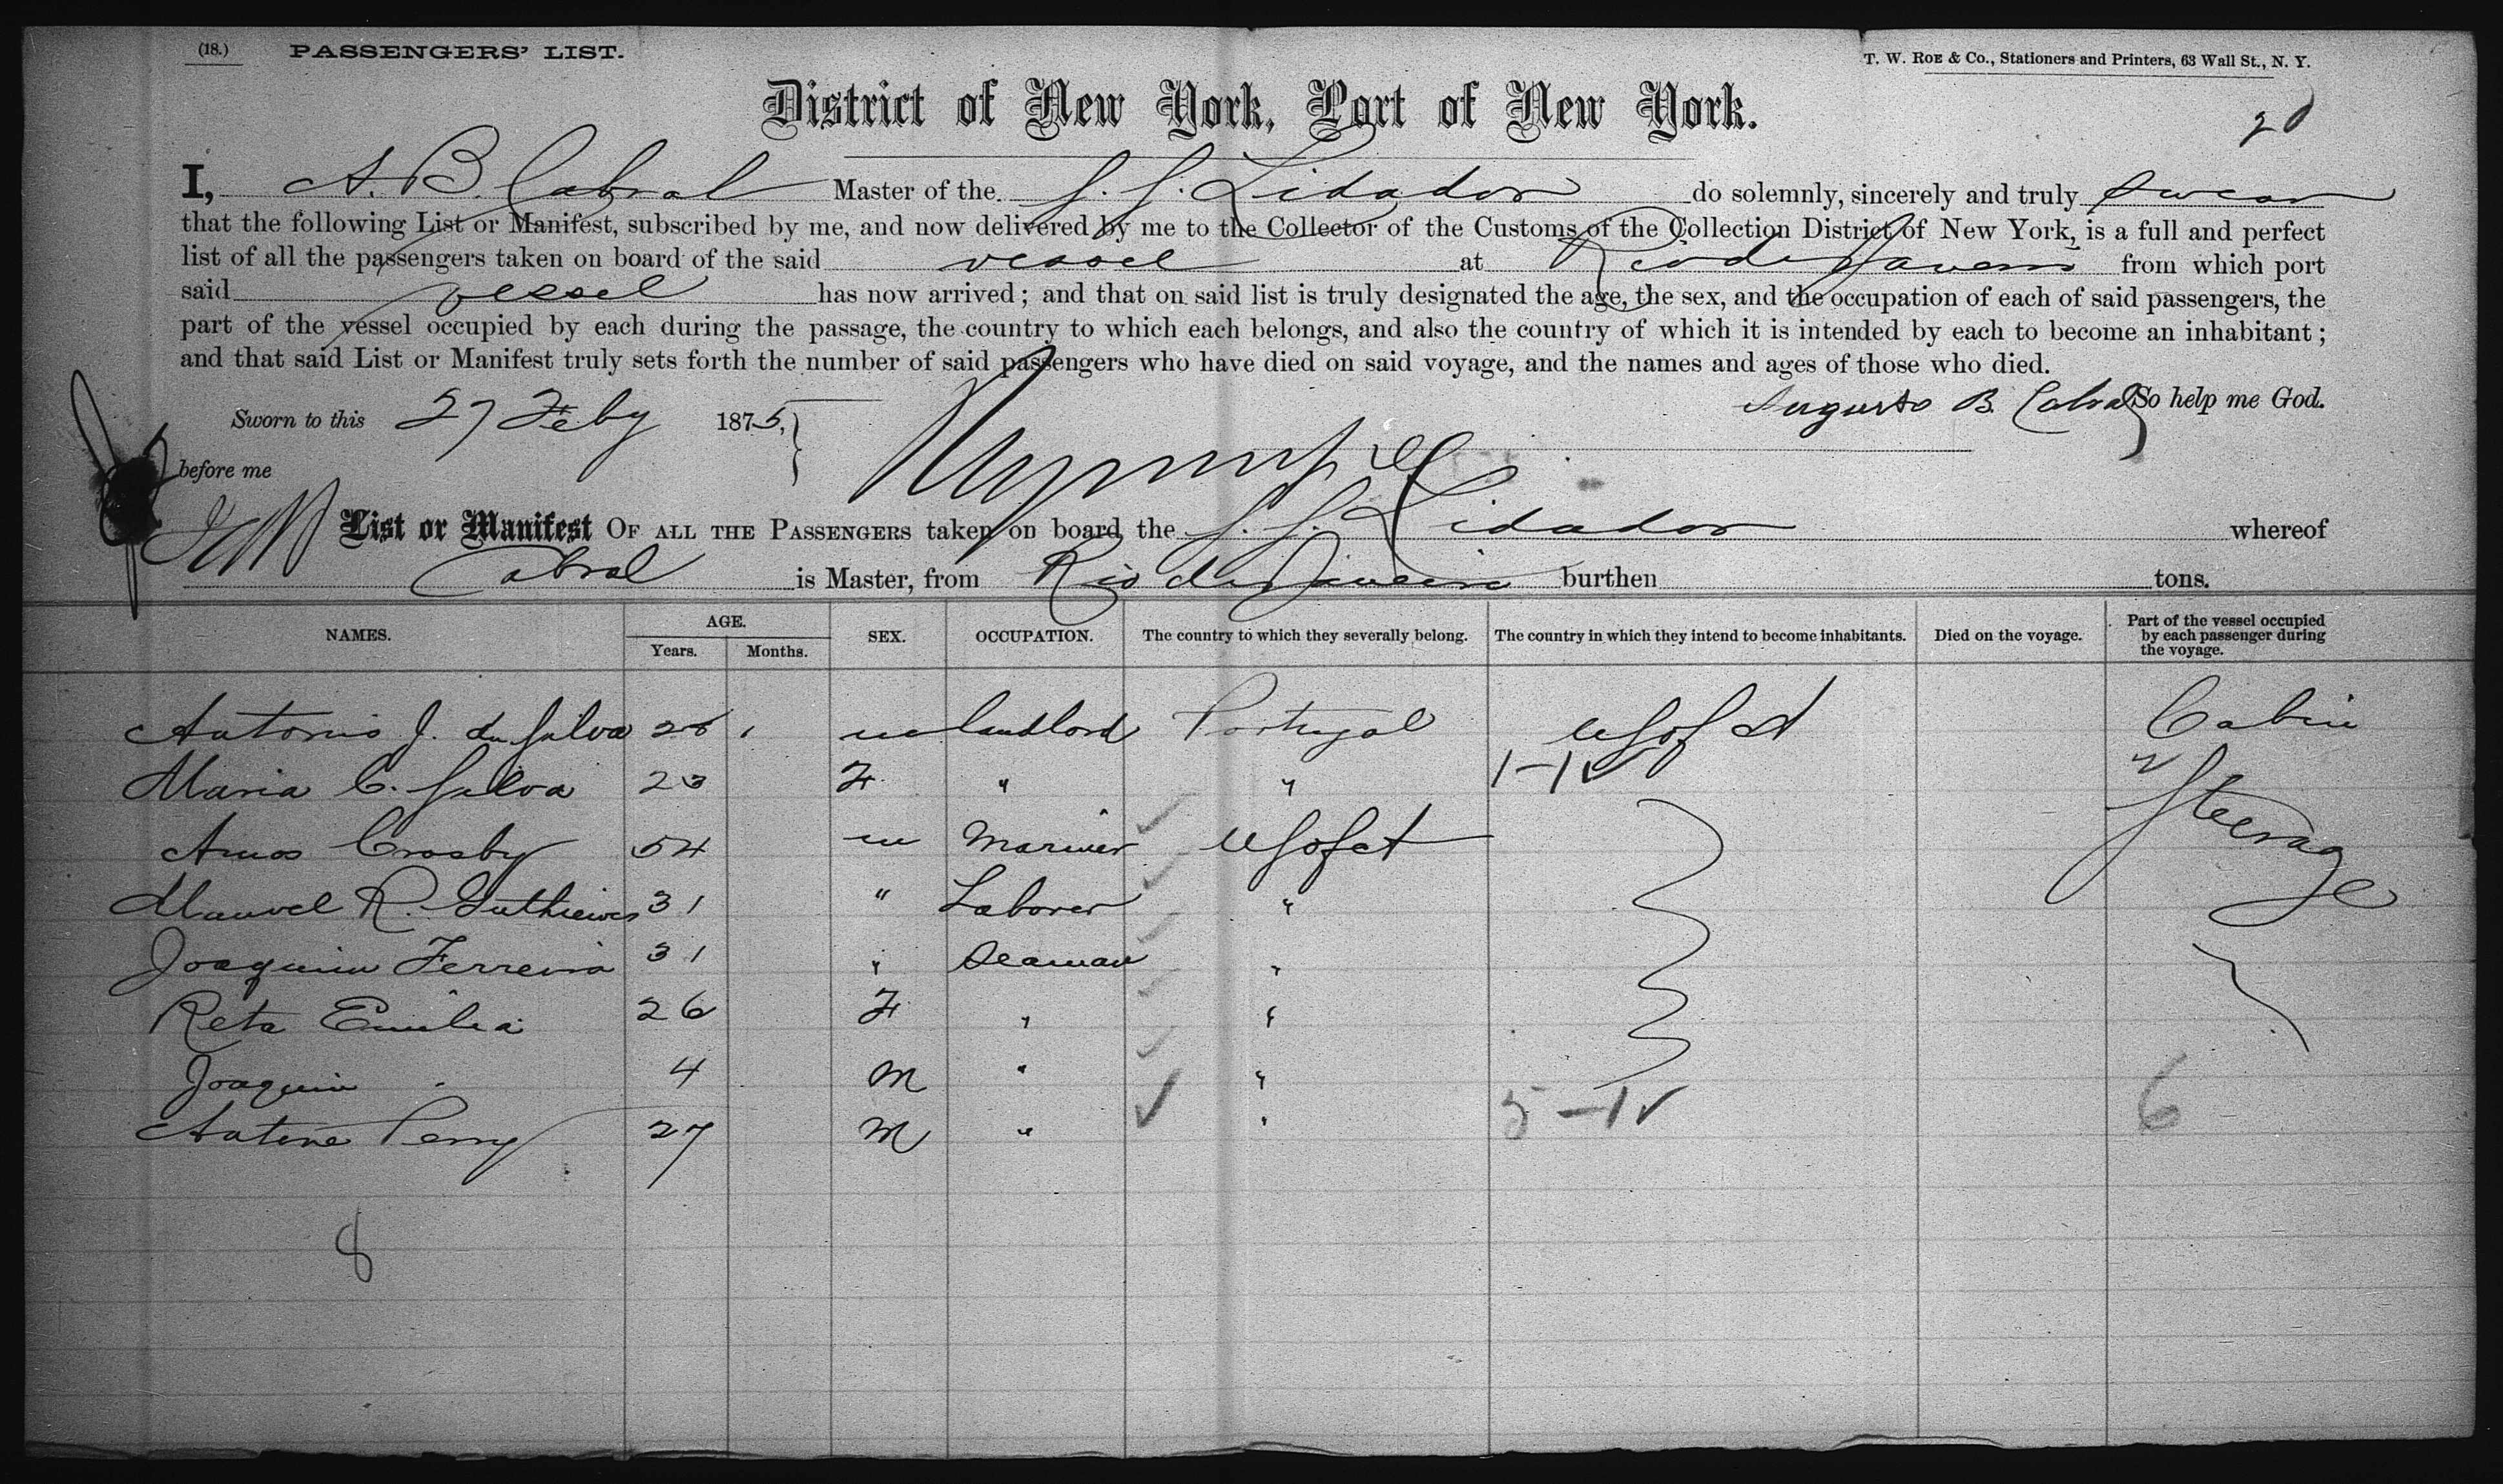 (18.) PASSENGERS' LIST.
T. W. ROE & Co., Stationers and Printers, 63 Wall St., N. Y.
District of New York, Port of New York.
20
I, A. B. Cabral Master of the S. S. Lidador do solemnly, sincerely and truly swear
that the following List or Manifest, subscribed by me, and now delivered by me to the Collector of the Customs of the Collection District of New York, is a full and perfect
list of all the passengers taken on board of the said vessel at Rio de Janeiro from which port
said vessel has now arrived; and that on said list is truly designated the age, the sex, and the occupation of each of said passengers, the
part of the vessel occupied by each during the passage, the country to which each belongs, and also the country of which it is intended by each to become an inhabitant;
and that said List or Manifest truly sets forth the number of said passengers who have died on said voyage, and the names and ages of those who died.
Augusto B. Cabral So help me God.
Sworn to this 27 Feby 1875,
before me
List or Manifest OF ALL THE PASSENGERS taken on board the S. S. Lidador whereof
Cabral is Master, from Rio de Janeiro burthen tons.
NAMES. AGE. Years. Months. SEX. OCCUPATION. The country to which they severally belong. The country in which they intend to become inhabitants. Died on the voyage. Part of the vessel occupied by each passenger during the voyage.
Antonio J. da Silva m landlord Portugal U S of A Cabin
Maria C. Silva 23 F " " 1-1 ✓
Amos Crosby 54 m Mariner U S of A Steerage
Manuel R. 31 " Laborer "
Joaquim Ferreira 31 " Seaman "
Reta Emilia 26 F " "
Joaquim 4 M " "
Antone Perry 27 M " " 5-1 ✓ 6
8